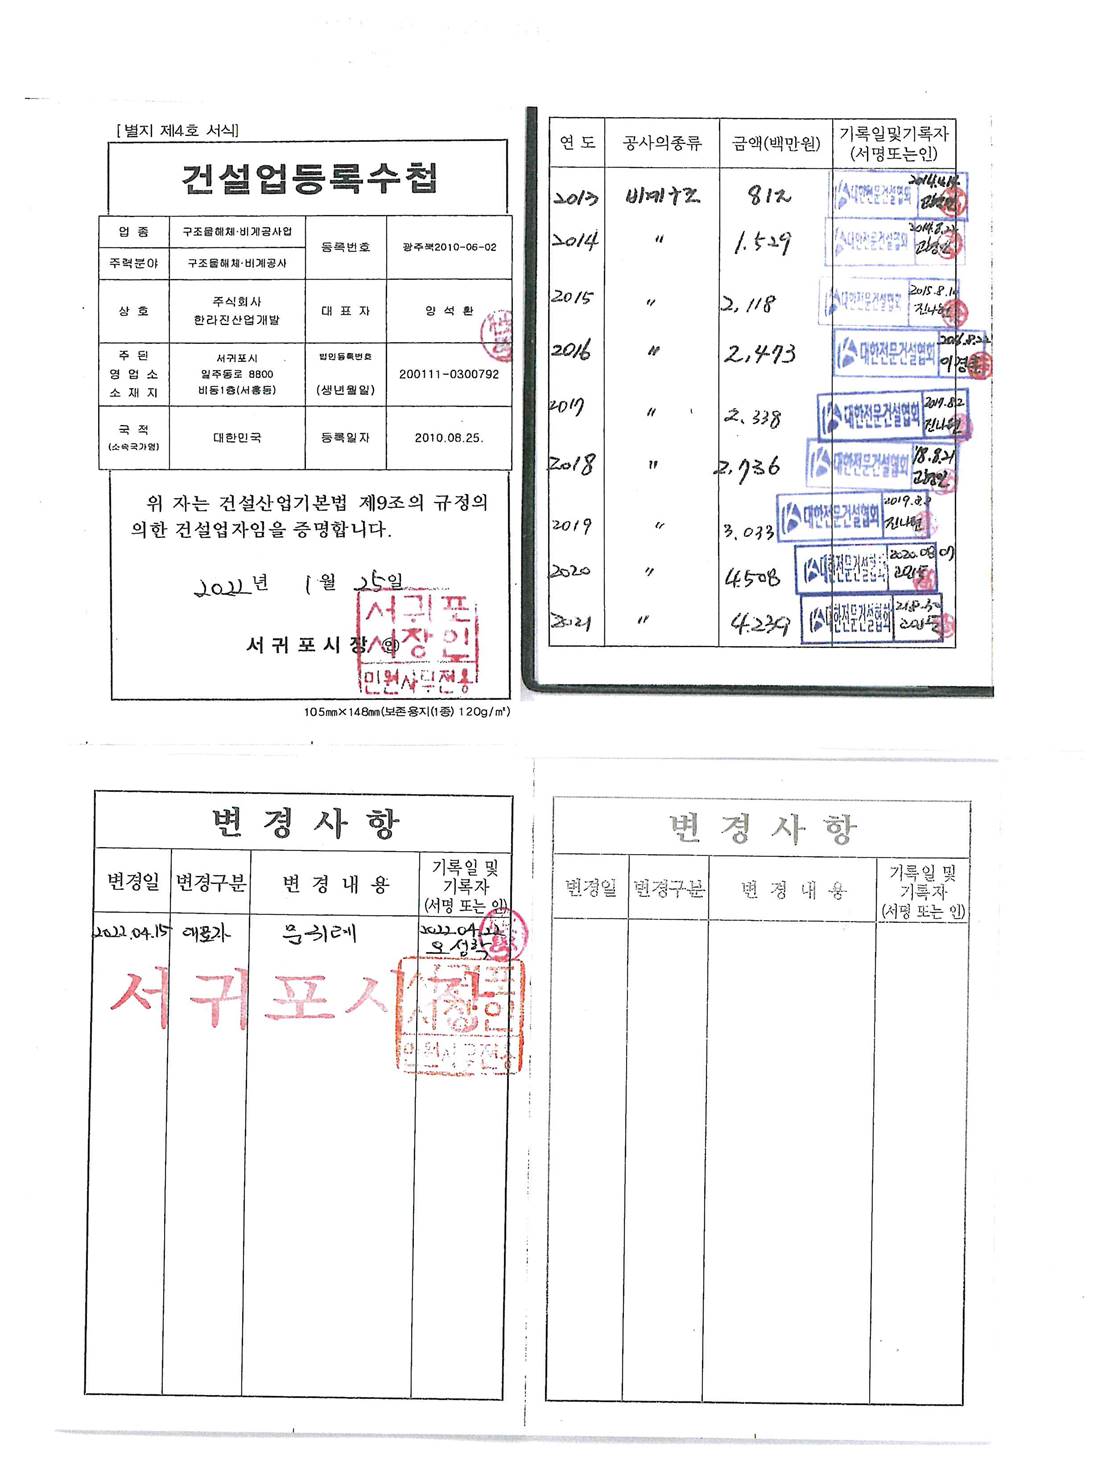 [별지 제4호 서식]
건설업등록수첩
업 종 구조물해체·비계공사업 등록번호 광주북2010-06-02
주력분야 구조물해체·비계공사
상 호 주식회사 한라진산업개발 대 표 자 양 석 환
주 된 영 업 소 소 재 지 서귀포시 일주동로 8800 비동1층(서홍동) 법인등록번호 (생년월일) 200111-0300792
국 적 (소속국가명) 대한민국 등록일자 2010.08.25.
위 자는 건설산업기본법 제9조의 규정의
의한 건설업자임을 증명합니다.
2022년 1월 25일
서귀포시장 인
서귀포
시장인
민원사무전용
105mm×148mm(보존용지(1종) 120g/㎡)
연 도 공사의종류 금액(백만원) 기록일및기록자 (서명또는인)
2013 비계구조 812 대한전문건설협회
2014 〃 1.529 대한전문건설협회 2014.8.
2015 〃 2,118 대한전문건설협회 2015.8. 진나현
2016 〃 2,473 대한전문건설협회 2016.8.22 이경훈
2017 〃 2.338 대한전문건설협회 2017.8.2 진나현
2018 〃 2,736 대한전문건설협회 '18.8.21
2019 〃 3.033 대한전문건설협회 2019.8. 진나현
2020 〃 4.508 대한전문건설협회 2020.08.07
2021 〃 4.239 대한전문건설협회
변 경 사 항
변경일 변경구분 변 경 내 용 기록일 및 기록자 (서명 또는 인)
2022.04.15 대표자 2022.04.22
서귀포시장
서귀포
시장인
민원사무전용
변 경 사 항
변경일 변경구분 변 경 내 용 기록일 및 기록자 (서명 또는 인)